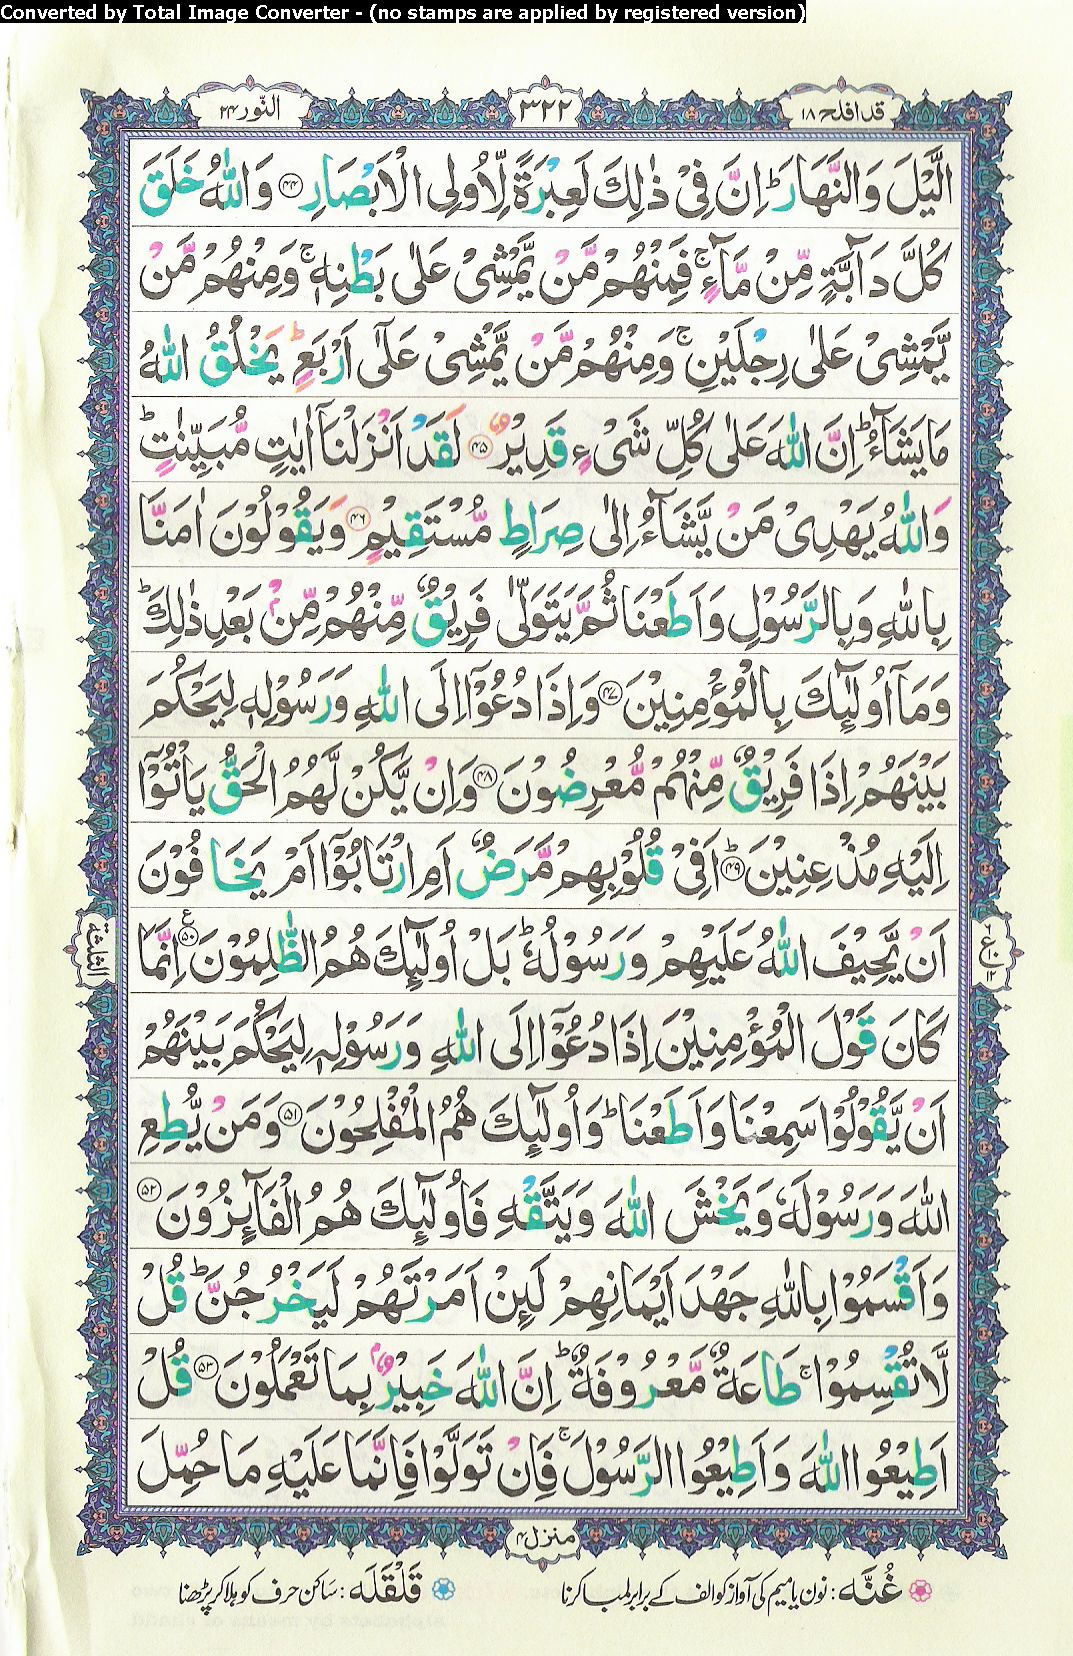 Converted by Total Image Converter - (no stamps are applied by registered version)
قد افلح ۱۸
۳۲۲
النّور ۲۴
الَّيۡلَ وَالنَّهَارَ ؕ اِنَّ فِىۡ ذٰ لِكَ لَعِبۡرَةً لِّاُولِى الۡاَبۡصَارِ ﴿۴۴﴾ وَاللّٰهُ خَلَقَ
كُلَّ دَآبَّةٍ مِّنۡ مَّآءٍ ۚ فَمِنۡهُمۡ مَّنۡ يَّمۡشِىۡ عَلٰى بَطۡنِهٖ ۚ وَمِنۡهُمۡ مَّنۡ
يَّمۡشِىۡ عَلٰى رِجۡلَيۡنِ ۚ وَمِنۡهُمۡ مَّنۡ يَّمۡشِىۡ عَلٰٓى اَرۡبَعٍ ؕ يَخۡلُقُ اللّٰهُ
مَا يَشَآءُ ؕ اِنَّ اللّٰهَ عَلٰى كُلِّ شَىۡءٍ قَدِيۡرٌ ﴿۴۵﴾ لَقَدۡ اَنۡزَلۡنَاۤ اٰيٰتٍ مُّبَيِّنٰتٍ ؕ
وَاللّٰهُ يَهۡدِىۡ مَنۡ يَّشَآءُ اِلٰى صِرَاطٍ مُّسۡتَقِيۡمٍ ﴿۴۶﴾ وَيَقُوۡلُوۡنَ اٰمَنَّا
بِاللّٰهِ وَبِالرَّسُوۡلِ وَاَطَعۡنَا ثُمَّ يَتَوَلّٰى فَرِيۡقٌ مِّنۡهُمۡ مِّنۡۢ بَعۡدِ ذٰلِكَ ؕ
وَمَاۤ اُولٰٓئِكَ بِالۡمُؤۡمِنِيۡنَ ﴿۴۷﴾ وَاِذَا دُعُوۡۤا اِلَى اللّٰهِ وَرَسُوۡلِهٖ لِيَحۡكُمَ
بَيۡنَهُمۡ اِذَا فَرِيۡقٌ مِّنۡهُمۡ مُّعۡرِضُوۡنَ ﴿۴۸﴾ وَاِنۡ يَّكُنۡ لَّهُمُ الۡحَقُّ يَاۡتُوۡۤا
اِلَيۡهِ مُذۡعِنِيۡنَ ؕ ﴿۴۹﴾ اَفِىۡ قُلُوۡبِهِمۡ مَّرَضٌ اَمِ ارۡتَابُوۡۤا اَمۡ يَخَافُوۡنَ
اَنۡ يَّحِيۡفَ اللّٰهُ عَلَيۡهِمۡ وَرَسُوۡلُهٗ ؕ بَلۡ اُولٰٓئِكَ هُمُ الظّٰلِمُوۡنَ ﴿۵۰﴾ اِنَّمَا
كَانَ قَوۡلَ الۡمُؤۡمِنِيۡنَ اِذَا دُعُوۡۤا اِلَى اللّٰهِ وَرَسُوۡلِهٖ لِيَحۡكُمَ بَيۡنَهُمۡ
اَنۡ يَّقُوۡلُوۡا سَمِعۡنَا وَاَطَعۡنَا ؕ وَاُولٰٓئِكَ هُمُ الۡمُفۡلِحُوۡنَ ﴿۵۱﴾ وَمَنۡ يُّطِعِ
اللّٰهَ وَرَسُوۡلَهٗ وَيَخۡشَ اللّٰهَ وَيَتَّقۡهِ فَاُولٰٓئِكَ هُمُ الۡفَآئِزُوۡنَ ﴿۵۲﴾
وَاَقۡسَمُوۡا بِاللّٰهِ جَهۡدَ اَيۡمَانِهِمۡ لَئِنۡ اَمَرۡتَهُمۡ لَيَخۡرُجُنَّ ؕ قُلۡ
لَّا تُقۡسِمُوۡا ۚ طَاعَةٌ مَّعۡرُوۡفَةٌ ؕ اِنَّ اللّٰهَ خَبِيۡرٌۢ بِمَا تَعۡمَلُوۡنَ ﴿۵۳﴾ قُلۡ
اَطِيۡعُوا اللّٰهَ وَاَطِيۡعُوا الرَّسُوۡلَ ۚ فَاِنۡ تَوَلَّوۡا فَاِنَّمَا عَلَيۡهِ مَا حُمِّلَ
الثلثة
منزل ۴
غُنَّه : نون یا میم کی آواز کو الف کے برابر لمبا کرنا
قَلْقَلَه : ساکن حرف کو ہلا کر پڑھنا